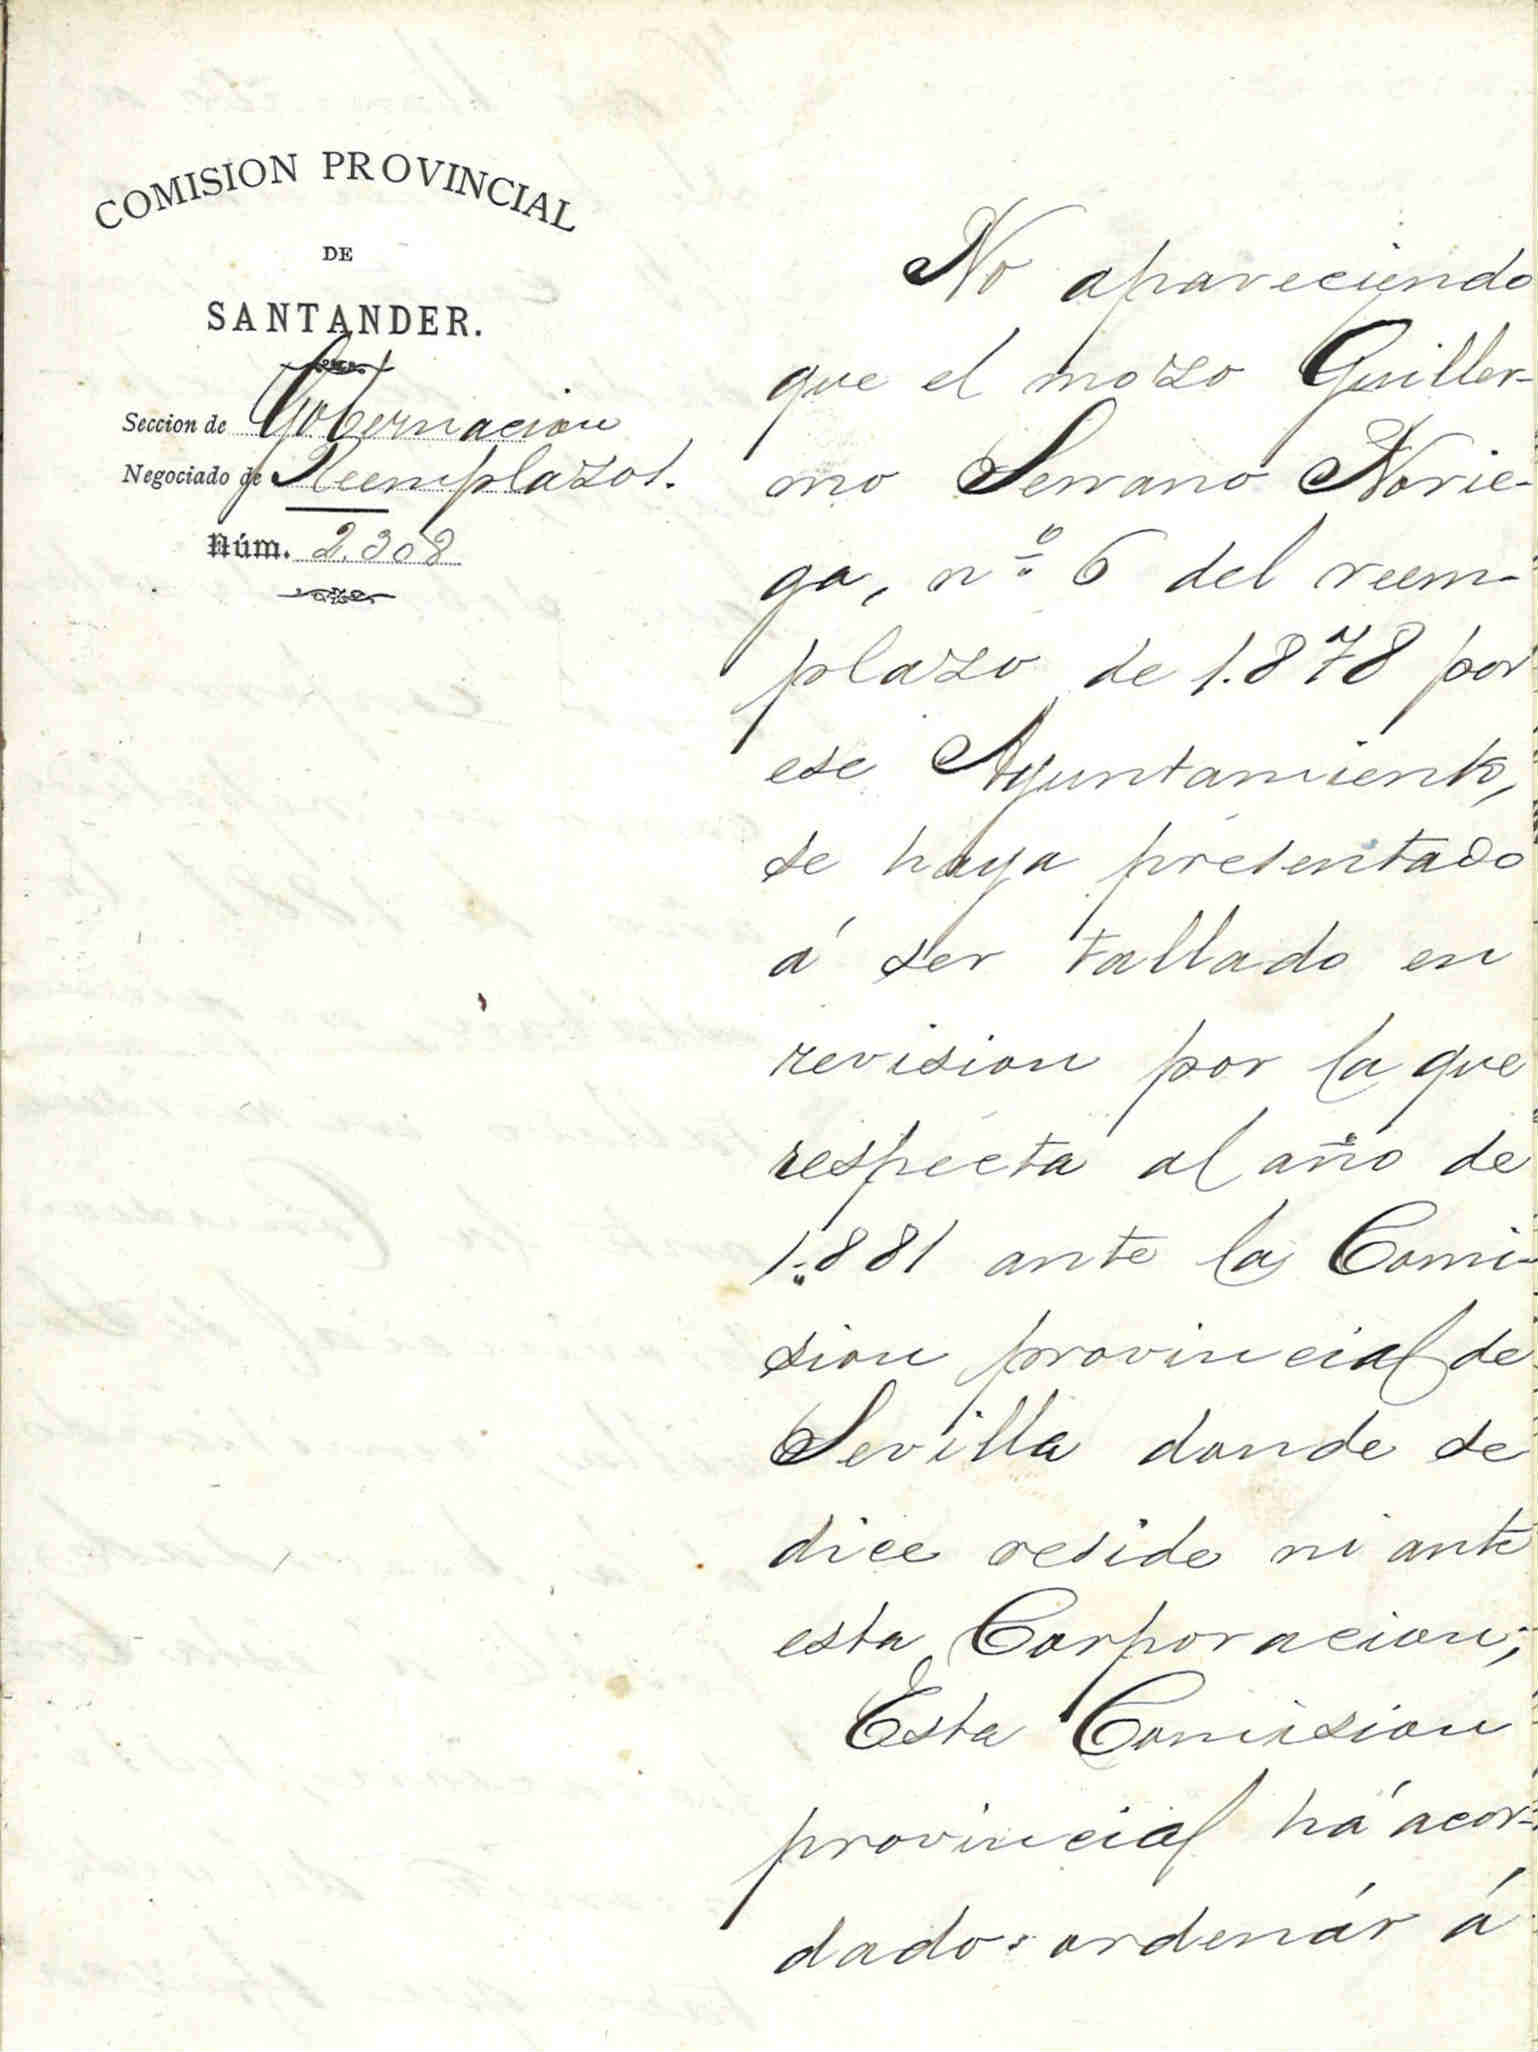 COMISION PROVINCIAL
DE
SANTANDER.
Seccion de Gobernacion
Negociado de Reemplazos.
Núm. 2.308
No apareciendo
que el mozo Guiller-
mo Serrano Norie-
ga, nº 6 del reem-
plazo de 1.878 por
ese Ayuntamiento,
se haya presentado
á ser tallado en
revision por la que
respecta al año de
1.881 ante la Comi-
sion provincial de
Sevilla donde se
dice reside ni ante
esta Corporacion;
Esta Comision
provincial há acor-
dado ordenár á